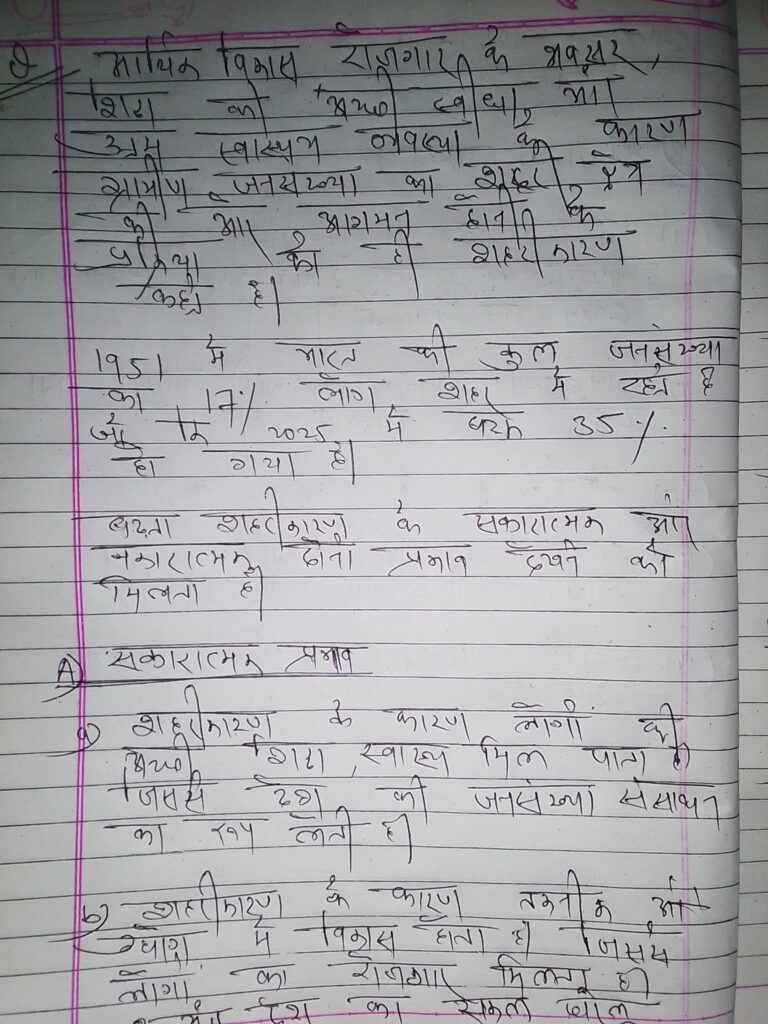 आर्थिक विकास रोजगार के अवसर,
शिक्षा की अच्छी स्वीधा और
उत्तम स्वास्थ्य व्यवस्था के कारण
ग्रामिण जनसंख्या का शहरी क्षेत्र
की ओर आगमन होने के
प्रक्रिया को ही शहरीकारण
कहते है।
1951 मे भारत की कुल जनसंख्या
का 17% लोग शहर मे रहते है
जो कि 2025 मे बढकर 35%
हो गया है।
बढता शहरीकारण के सकारात्मक और
नकारात्मक दोनो प्रभाव देखने को
मिलता है।
A) सकारात्मक प्रभाव
a) शहरीकारण के कारण लोगो की
अच्छी शिक्षा, स्वास्थ्य मिल पाता है।
जिससे देश की जनसंख्या संसाधन
का रुप लेती है।
b) शहरीकारण के कारण तकनीक और
उद्योग मे विकास होता है। जिससे
लोगो का रोजगार मिलता है।
और देश का सकल घरेलु